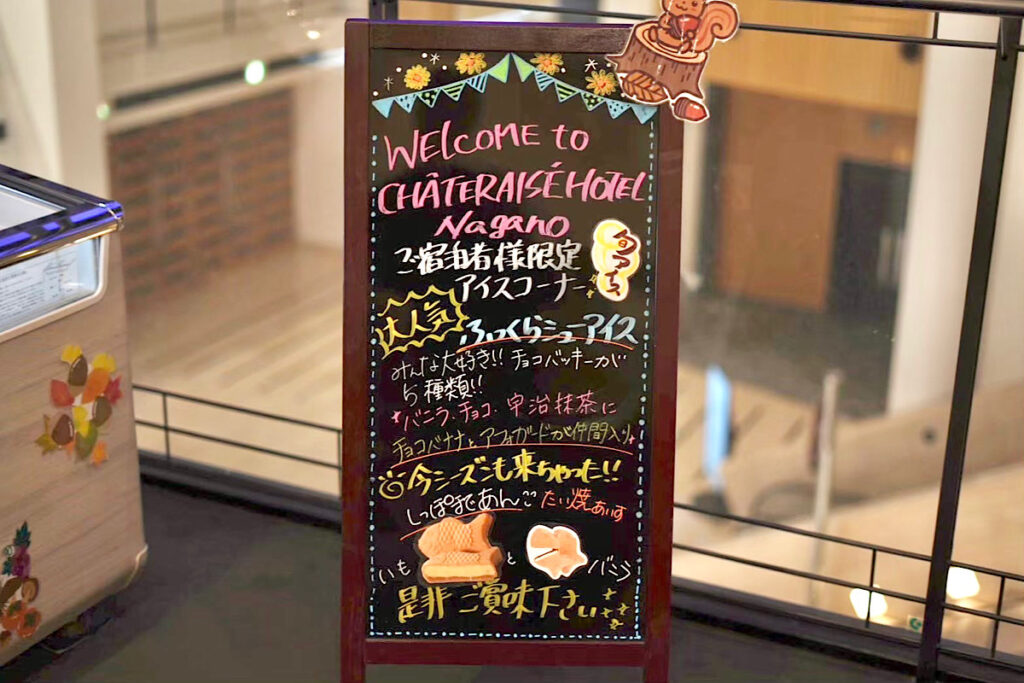 WELCOME to
CHÂTERAISÉ HOTEL
Nagano
ご宿泊者様限定
アイスコーナー
旬アイス
大人気
ふっくらシューアイス
みんな大好き!! チョコバッキーが
5種類!!
バニラ、チョコ、宇治抹茶に
チョコバナナとアフォガードが仲間入り♪
今シーズンも来ちゃった!!
しっぽまであんこ たい焼あいす
いも と バニラ
是非ご賞味下さい